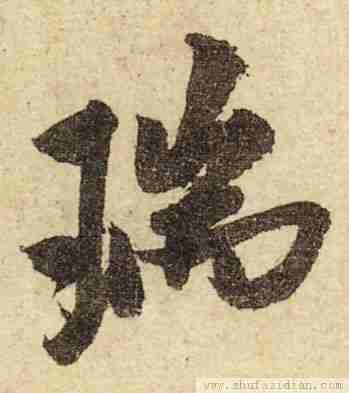 瑞
www.shufazidian.com